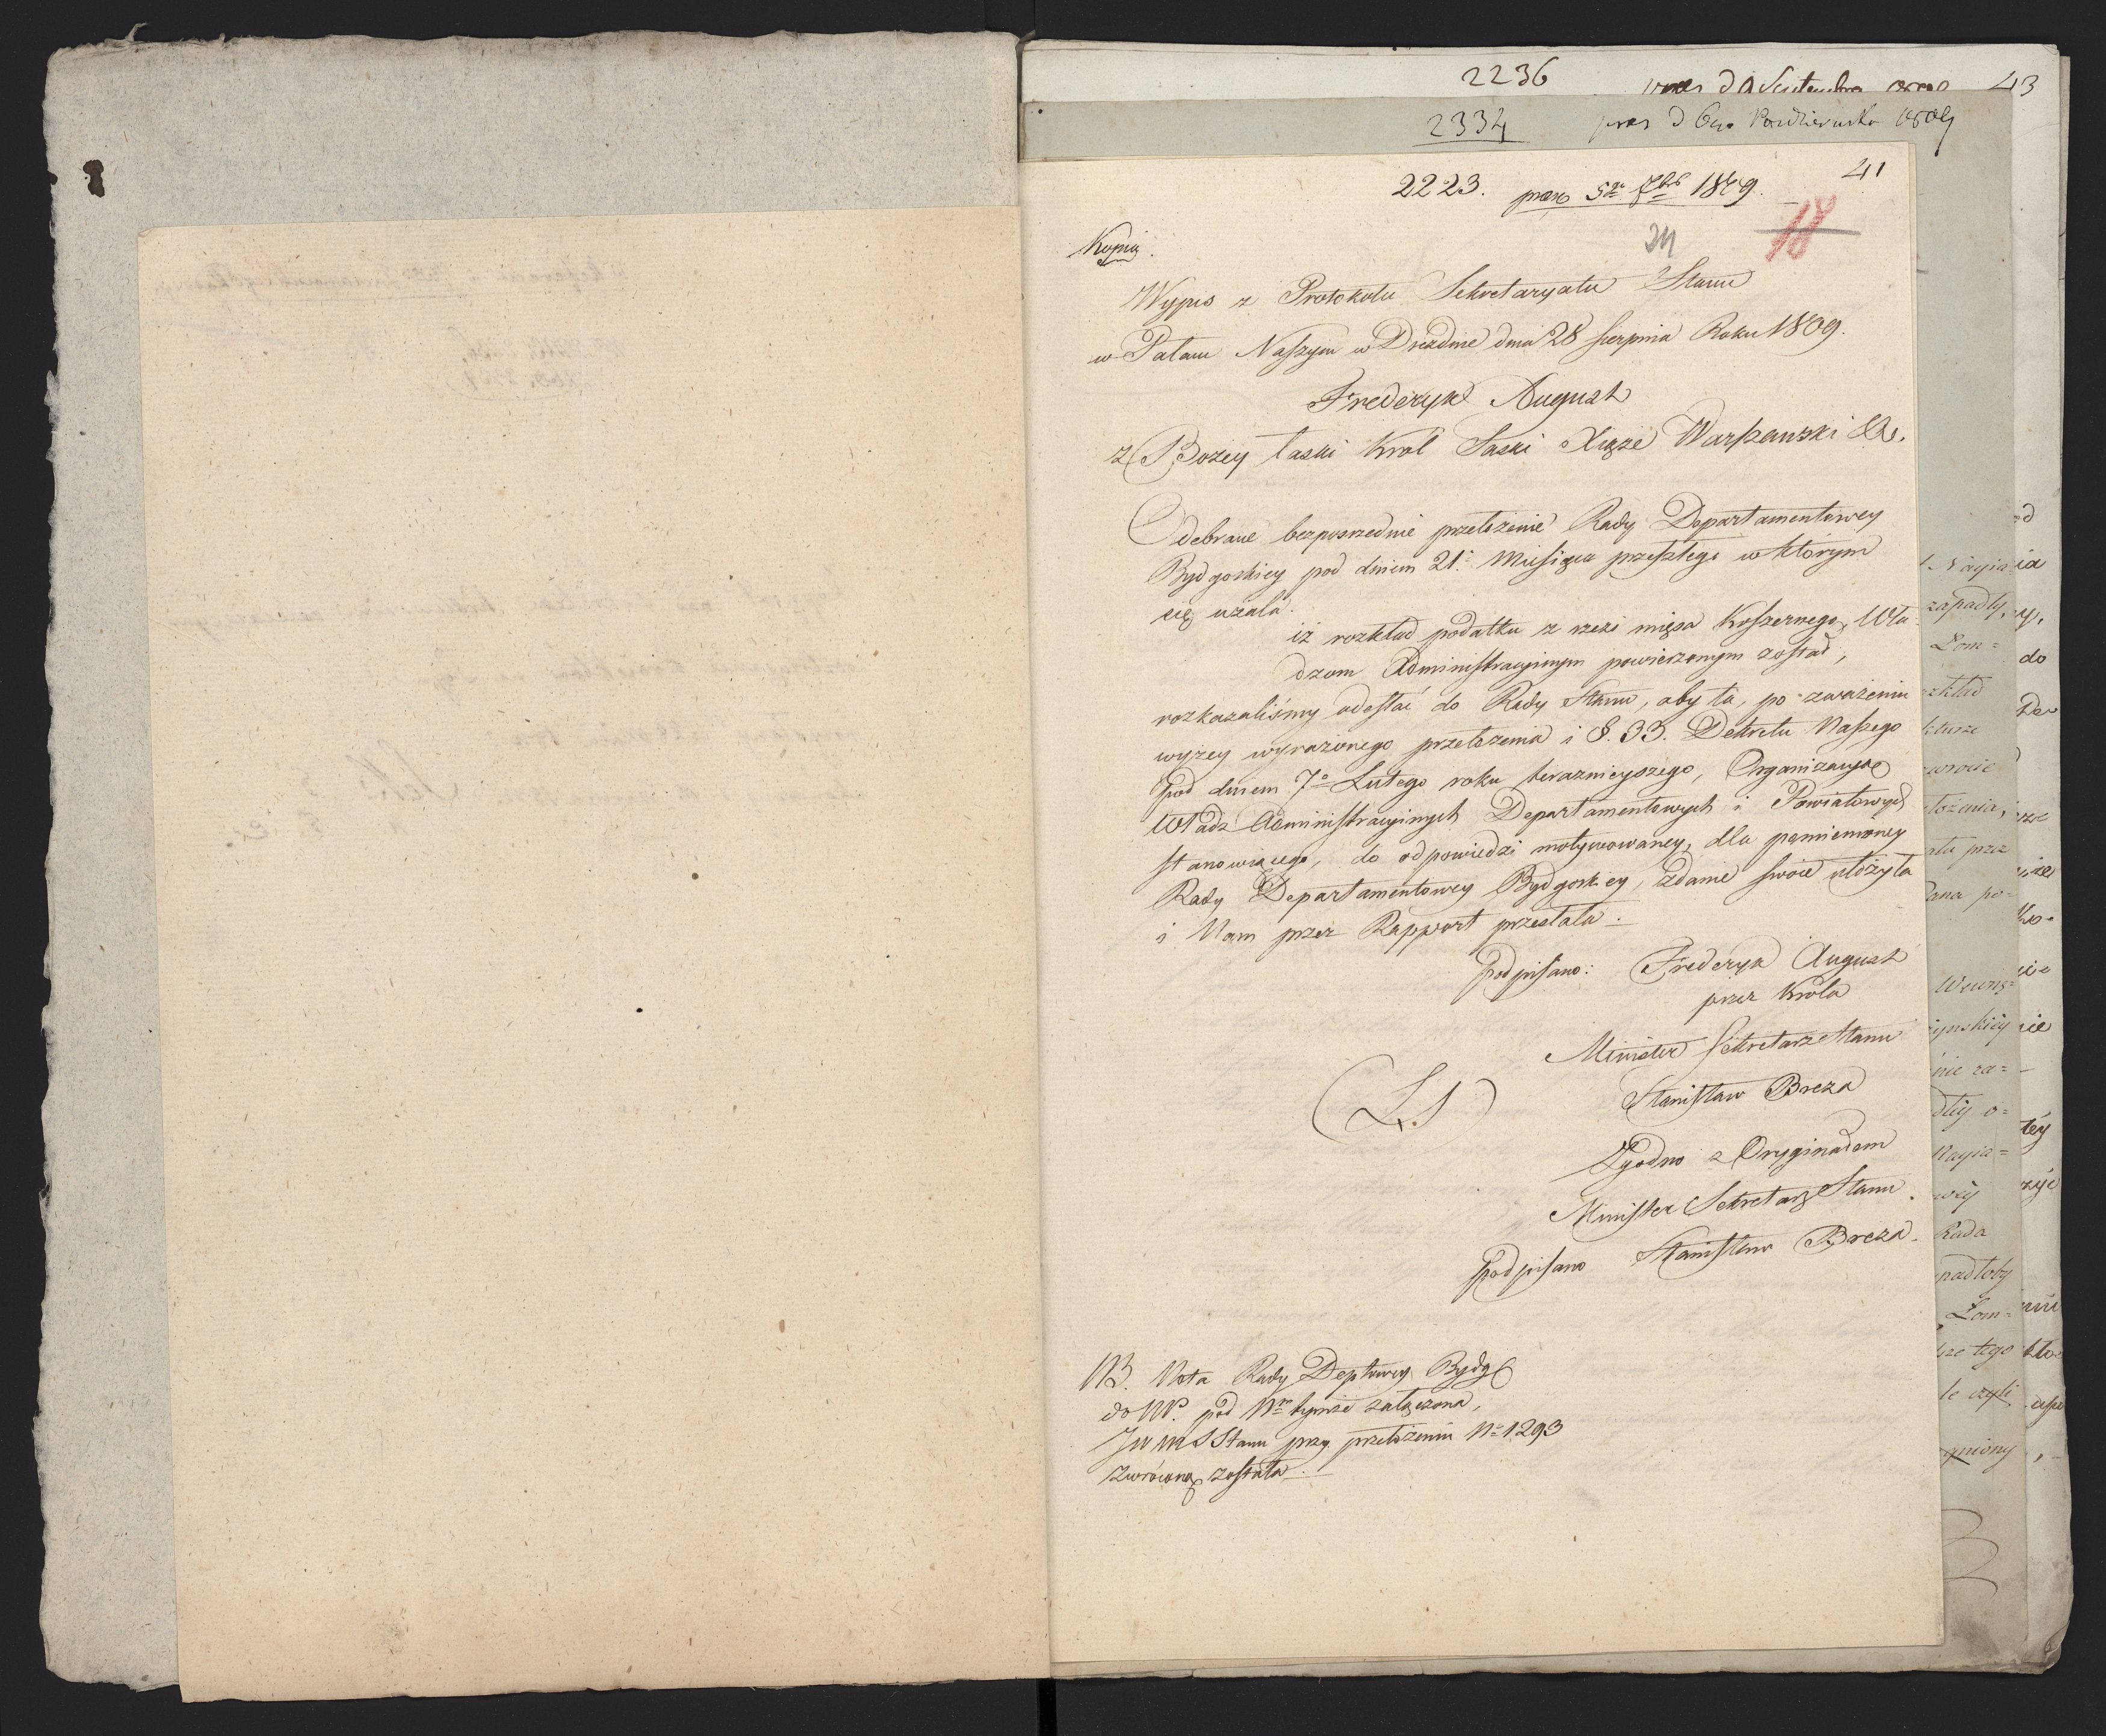 2236
43
2334
2223. præs 5go 7bris 1809.
41
24
18
Kopia.
Wypis z Protokołu Sekretaryatu Stanu
w Pałacu Naszym w Dreźdnie dnia 28 Sierpnia Roku 1809.
Frederyk August
z Bożey łaski Krol Saski Xiąże Warszawski &&.
Odebrane bezpośrzednie przełożenie Rady Departamentowey
Bydgoskiey pod dniem 21. Miesiąca przeszłego w którym
się użala.
iż rozkład podatku z rzezi mięsa Koszernego, Wła-
dzom Administracyinym powierzonym został,
rozkazaliśmy odesłać do Rady Stanu, aby ta, po zważeniu
wyżey wyrażonego przełożenia i §. 33. Dekretu Naszego
pod dniem 7o Lutego roku teraznieyszego, Organizacyą
Władz Administracyinych Departamentowych i Powiatowych
stanowiącego, do odpowiedzi motywowaney, dla pomienioney
Rady Departamentowey Bydgoskiey, zdanie swoie ułożyła
i Nam przez Rapport przesłała.
podpisano: Frederyk August
przez Krola
Minister Sekretarz Stanu
Stanisław Breza
(L.S)
Zgodno z Oryginałem
Minister Sekretarz Stanu.
podpisano Stanisław Breza.
NB. Nota Rady Deptowey Bydg
do NP. pod Nrm tymże załączona,
JW MS Stanu przy przełożeniu No 1293
zwrócona została.